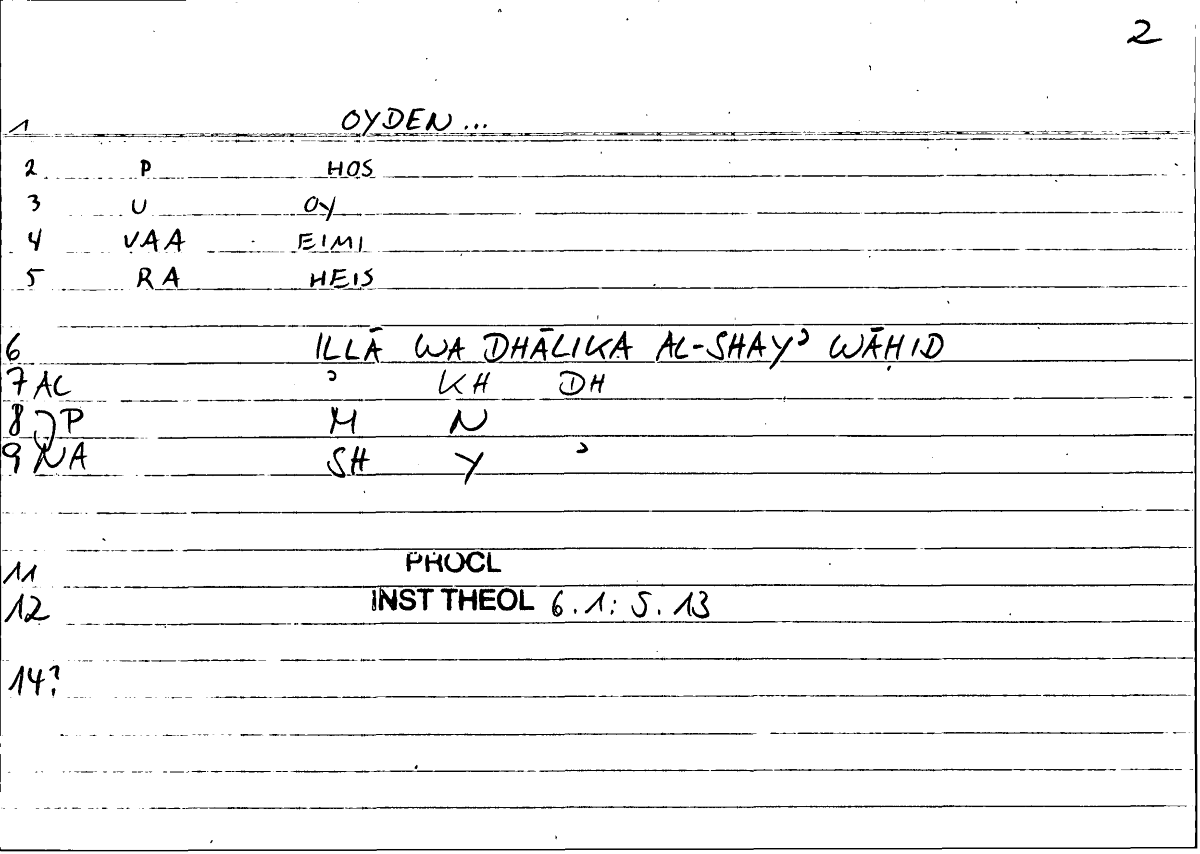 2
1 OYDEN...
2 P HOS
3 U OY
4 VAA EIMI
5 RA HEIS
6 ILLĀ WA DHĀLIKA AL-SHAYʾ WĀḤID
7 AC ʾ KH DH
8 P M N
9 NA SH Y ʾ
11 PROCL
12 INST THEOL 6.1: 5.13
14?